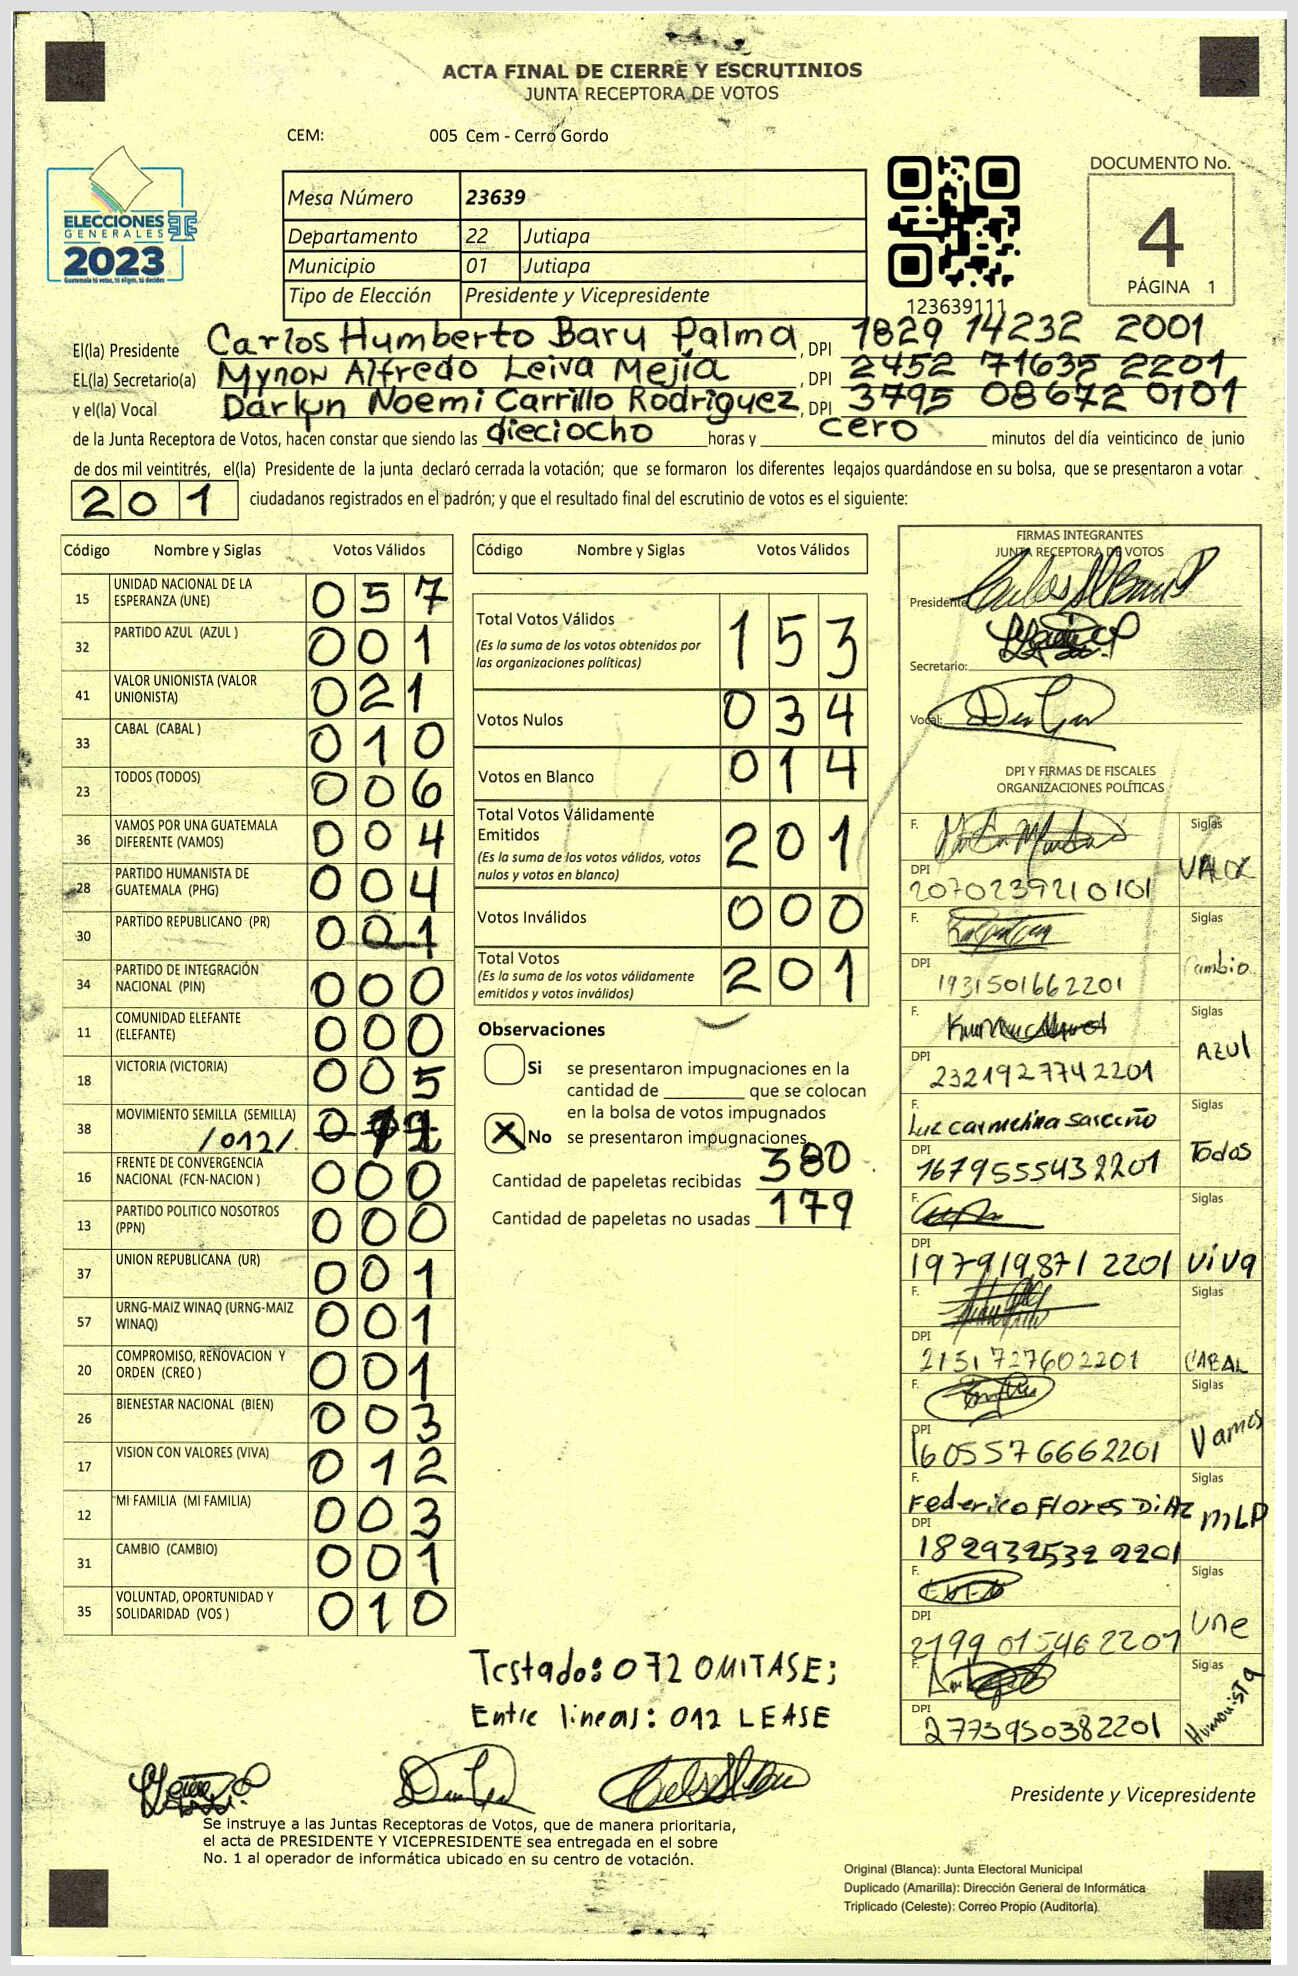 ACTA FINAL DE CIERRE Y ESCRUTINIOS
JUNTA RECEPTORA DE VOTOS
CEM: 005 Cem - Cerro Gordo
ELECCIONES
GENERALES
2023
Guatemala tú votas, tú eliges, tú decides
Mesa Número 23639
Departamento 22 Jutiapa
Municipio 01 Jutiapa
Tipo de Elección Presidente y Vicepresidente
123639111
DOCUMENTO No.
4
PÁGINA 1
El(la) Presidente Carlos Humberto Baru Palma, DPI 1829 14232 2001
EL(la) Secretario(a) Mynon Alfredo Leiva Mejía, DPI 2452 71635 2201
y el(la) Vocal Darlyn Noemi Carrillo Rodriguez, DPI 3795 08672 0101
de la Junta Receptora de Votos, hacen constar que siendo las dieciocho horas y cero minutos del día veinticinco de junio
de dos mil veintitrés, el(la) Presidente de la junta declaró cerrada la votación; que se formaron los diferentes legajos quardándose en su bolsa, que se presentaron a votar
201 ciudadanos registrados en el padrón; y que el resultado final del escrutinio de votos es el siguiente:
Código Nombre y Siglas Votos Válidos
15 UNIDAD NACIONAL DE LA ESPERANZA (UNE) 057
32 PARTIDO AZUL (AZUL ) 001
41 VALOR UNIONISTA (VALOR UNIONISTA) 021
33 CABAL (CABAL ) 010
23 TODOS (TODOS) 006
36 VAMOS POR UNA GUATEMALA DIFERENTE (VAMOS) 004
28 PARTIDO HUMANISTA DE GUATEMALA (PHG) 004
30 PARTIDO REPUBLICANO (PR) 001
34 PARTIDO DE INTEGRACIÓN NACIONAL (PIN) 000
11 COMUNIDAD ELEFANTE (ELEFANTE) 000
18 VICTORIA (VICTORIA) 005
38 MOVIMIENTO SEMILLA (SEMILLA) /012/.
16 FRENTE DE CONVERGENCIA NACIONAL (FCN-NACION ) 000
13 PARTIDO POLITICO NOSOTROS (PPN) 000
37 UNION REPUBLICANA (UR) 001
57 URNG-MAIZ WINAQ (URNG-MAIZ WINAQ) 001
20 COMPROMISO, RENOVACION Y ORDEN (CREO ) 001
26 BIENESTAR NACIONAL (BIEN) 003
17 VISION CON VALORES (VIVA) 012
12 MI FAMILIA (MI FAMILIA) 003
31 CAMBIO (CAMBIO) 001
35 VOLUNTAD, OPORTUNIDAD Y SOLIDARIDAD (VOS ) 010
Código Nombre y Siglas Votos Válidos
Total Votos Válidos 153
(Es la suma de los votos obtenidos por
las organizaciones políticas)
Votos Nulos 034
Votos en Blanco 014
Total Votos Válidamente
Emitidos 201
(Es la suma de los votos válidos, votos
nulos y votos en blanco)
Votos Inválidos 000
Total Votos 201
(Es la suma de los votos válidamente
emitidos y votos inválidos)
Observaciones
Si se presentaron impugnaciones en la
cantidad de ________ que se colocan
en la bolsa de votos impugnados
X No se presentaron impugnaciones
Cantidad de papeletas recibidas 380
Cantidad de papeletas no usadas 179
FIRMAS INTEGRANTES
JUNTA RECEPTORA DE VOTOS
Presidente
Secretario:
Vocal:
DPI Y FIRMAS DE FISCALES
ORGANIZACIONES POLÍTICAS
F. Siglas
VALOR
DPI 2070239210101
F. Siglas
Cambio
DPI 1931501662201
F. Siglas
AZUl
DPI 2321927742201
F. Luz carmelina Sarceño Siglas
Todos
DPI 1679555432201
F. Siglas
DPI 1979198712201 ViVa
F. Siglas
DPI 2151727602201 CABAL
F. Siglas
Vamos
DPI 1605576662201
F. Federico Flores DiAz Siglas
MLP
DPI 1829325322201
F. Siglas
Une
DPI 2199015462201
F. Siglas
Humanista
DPI 2773950382201
Testado: 072 OMITASE;
Entre lineas: 012 LEASE
Presidente y Vicepresidente
Se instruye a las Juntas Receptoras de Votos, que de manera prioritaria,
el acta de PRESIDENTE Y VICEPRESIDENTE sea entregada en el sobre
No. 1 al operador de informática ubicado en su centro de votación.
Original (Blanca): Junta Electoral Municipal
Duplicado (Amarilla): Dirección General de Informática
Triplicado (Celeste): Correo Propio (Auditoría)